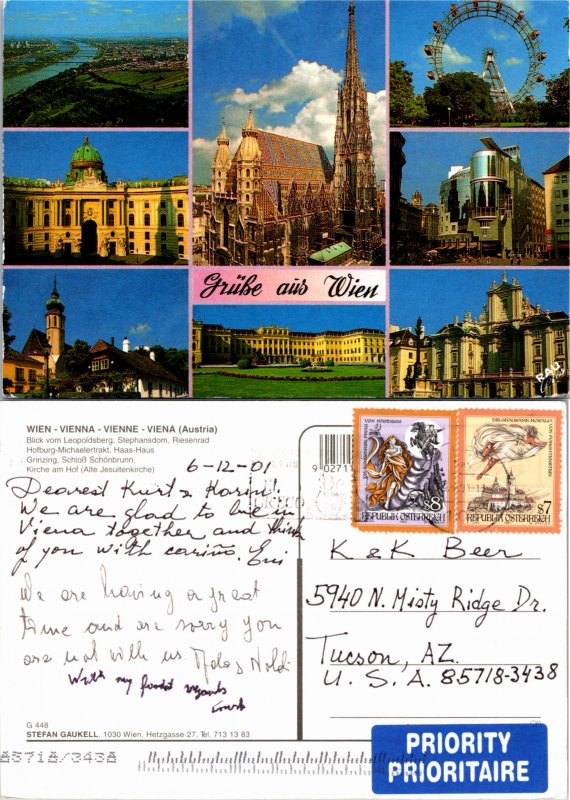 Grüße aus Wien
WIEN - VIENNA - VIENNE - VIENA (Austria)
Blick vom Leopoldsberg, Stephansdom, Riesenrad
Hofburg-Michaelertrakt, Haas-Haus
Grinzing, Schloß Schönbrunn,
Kirche am Hof (Alte Jesuitenkirche)
6-12-01
Dearest Kurt & Karin!
We are glad to be in
Viena together and think
of you with cariño. Evi
We are having a great
time and are sorry you
are not with us.
With my fondest regards
G 448
STEFAN GAUKELL, 1030 Wien, Hetzgasse 27, Tel. 713 13 83
A571A/343A
9 02711
S8
REPUBLIK ÖSTERREICH
S7
REPUBLIK ÖSTERREICH
K & K Beer
5940 N. Misty Ridge Dr.
Tucson, AZ.
U.S.A. 85718-3438
PRIORITY
PRIORITAIRE